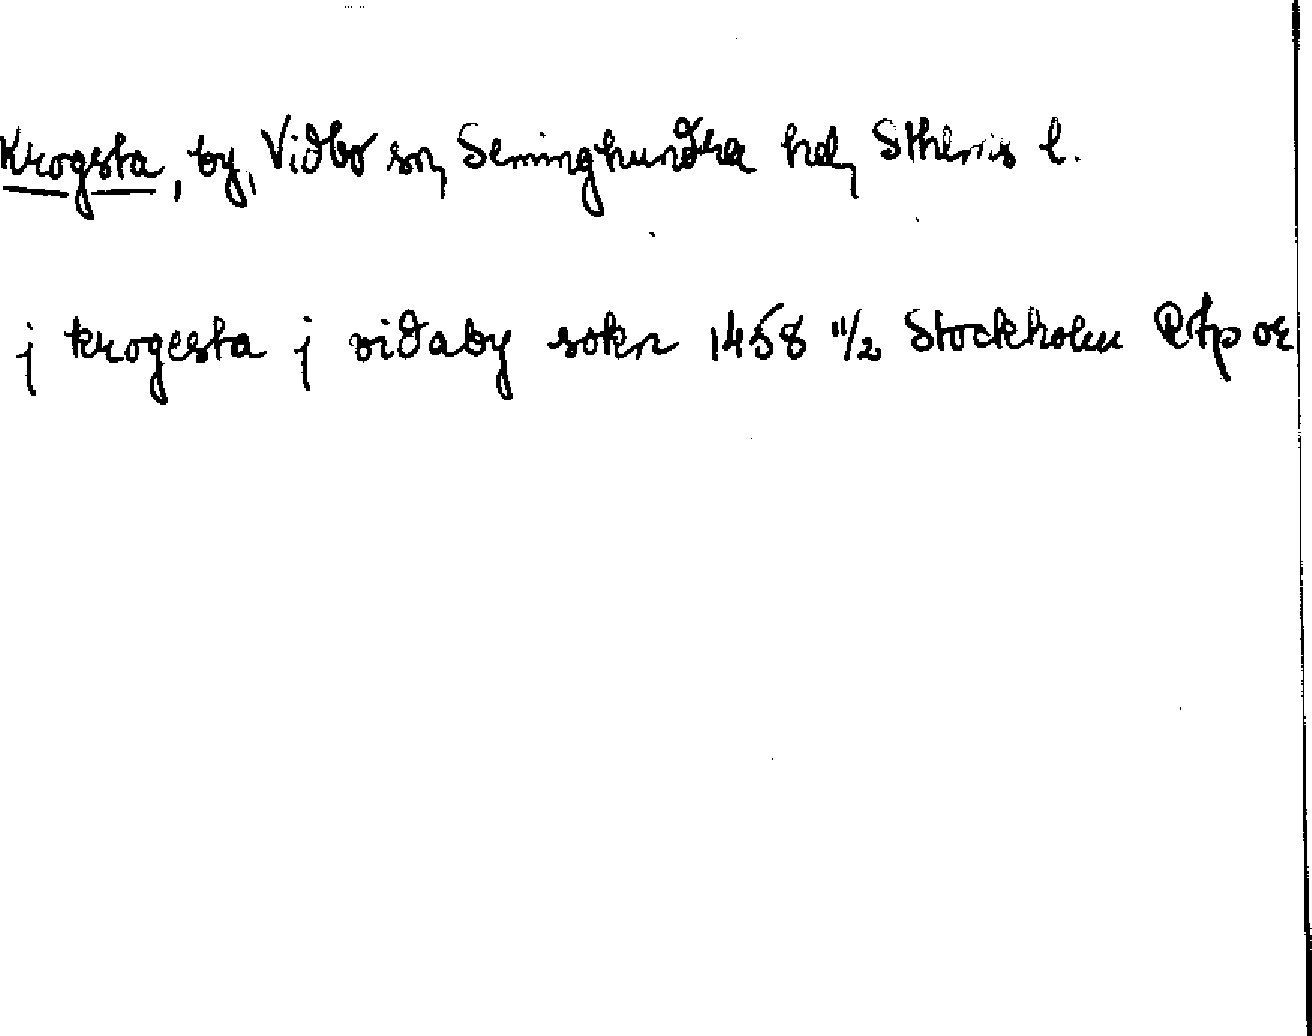 Krogsta, by, Vidbo sn, Seminghundra hd, Sthlms l.
j krogesta j vidaby sokn 1458 11/2 Stockholm RAp or